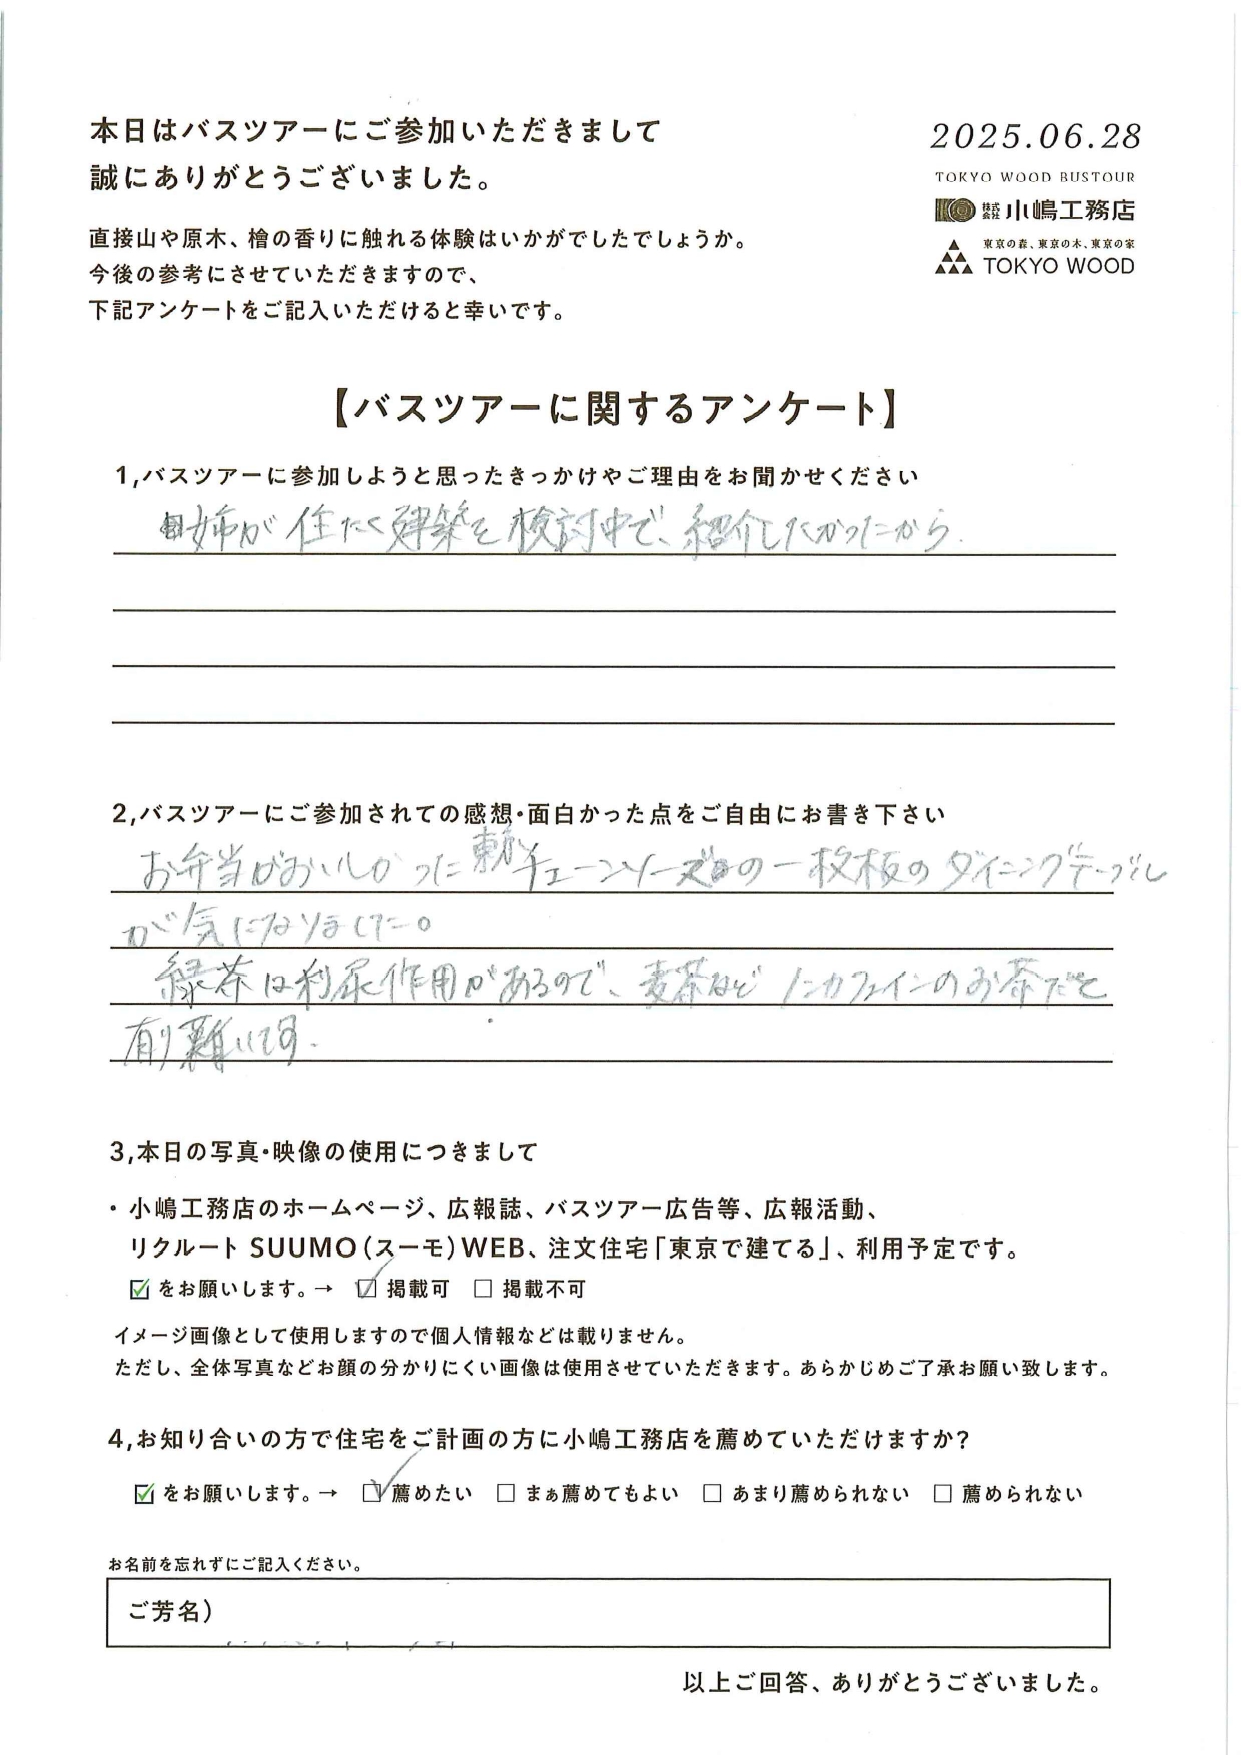 本日はバスツアーにご参加いただきまして
誠にありがとうございました。
2025.06.28
TOKYO WOOD BUSTOUR
株式会社 小嶋工務店
東京の森、東京の木、東京の家
TOKYO WOOD
直接山や原木、檜の香りに触れる体験はいかがでしたでしょうか。
今後の参考にさせていただきますので、
下記アンケートをご記入いただけると幸いです。
【バスツアーに関するアンケート】
1,バスツアーに参加しようと思ったきっかけやご理由をお聞かせください
姉が住たく建築を検討中で、紹介したかったから.
2,バスツアーにご参加されての感想・面白かった点をご自由にお書き下さい
お弁当がおいしかった チェーンソーズの一枚板のダイニングテーブル
が気になりました。
緑茶は利尿作用があるので、麦茶など ノンカフェインのお茶だと
有り難いです.
3,本日の写真・映像の使用につきまして
・小嶋工務店のホームページ、広報誌、バスツアー広告等、広報活動、
リクルート SUUMO(スーモ)WEB、注文住宅「東京で建てる」、利用予定です。
☑をお願いします。→ ☑ 掲載可 □ 掲載不可
イメージ画像として使用しますので個人情報などは載りません。
ただし、全体写真などお顔の分かりにくい画像は使用させていただきます。あらかじめご了承お願い致します。
4,お知り合いの方で住宅をご計画の方に小嶋工務店を薦めていただけますか?
☑をお願いします。→ ☑薦めたい □ まぁ薦めてもよい □ あまり薦められない □ 薦められない
お名前を忘れずにご記入ください。
ご芳名)
以上ご回答、ありがとうございました。